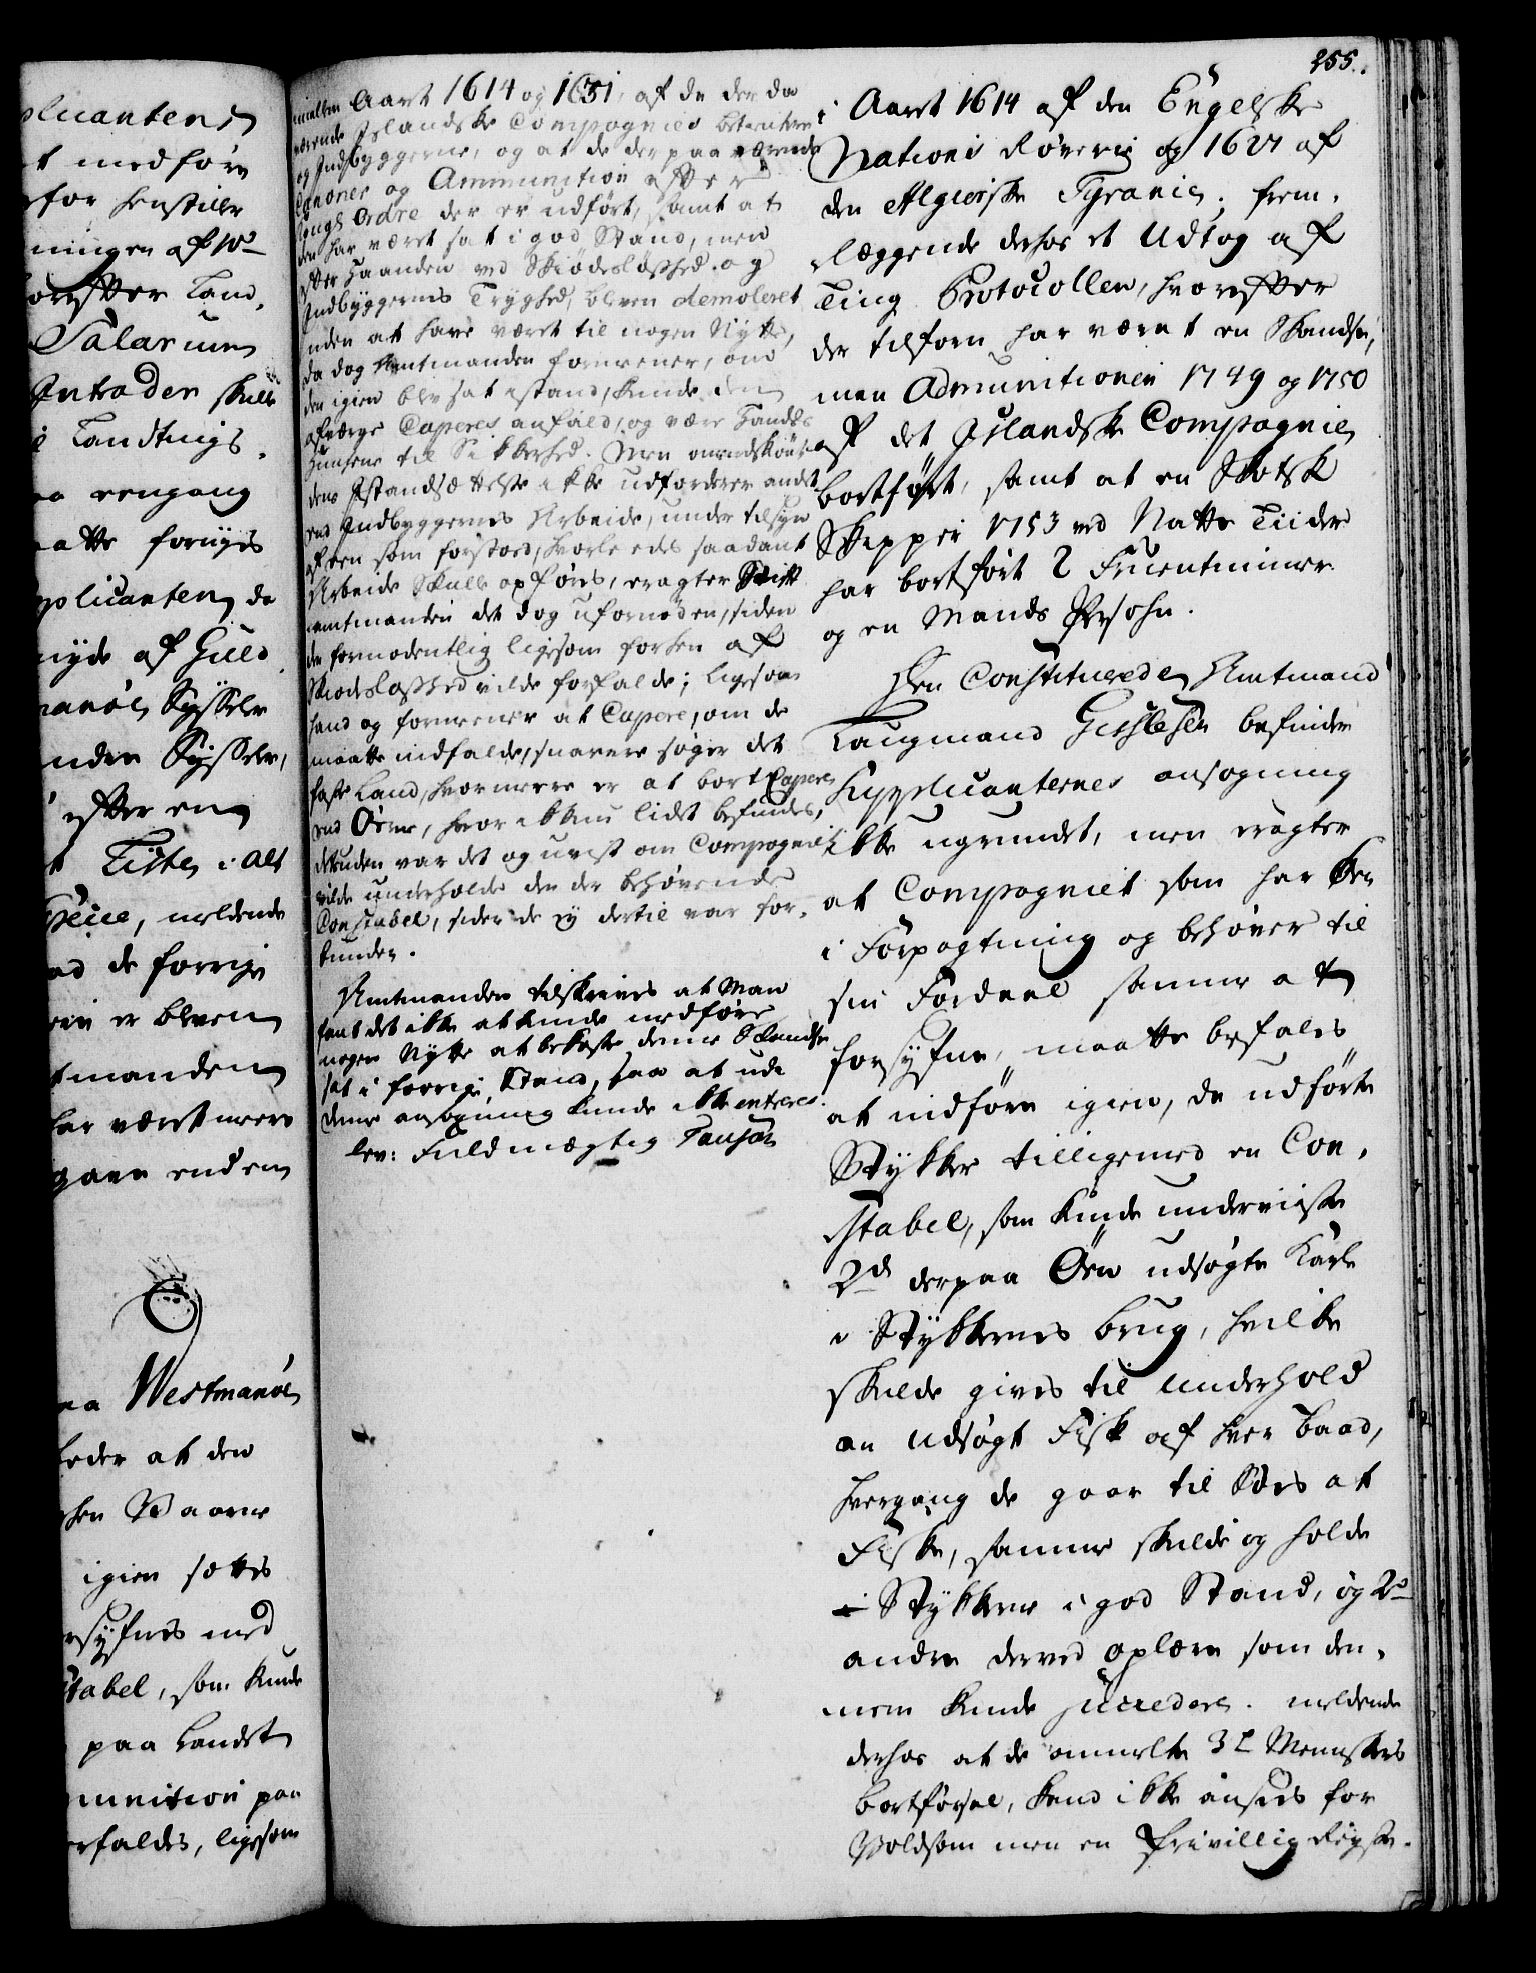 plicantens
t medføre
for henstiller
ningen af W
orefter Land,
Salarium
Intrader skulle
i Landtings,
en gang
atte fornyes
plicanten, da
nyde af Guld
manöe Sysseler
nden Syssel,
efter en
t Liste i alt
Specie, meldende
ad de forrige
er blevne
tmanden
har været meere
gave end en
aa Westmanöe
beder at den
igien sættes
rsynes med
stabel, som kunde
paa Landet
munition paa
rfaldes, ligesom
255.
imellem Aaret 1614 og 1631, af de der da
værende Islandske Compagnies betientere
og Indbyggerne, og at de derpaa værende
Canoner og Ammunition efter
Kongl: Ordre der er udført, samt at
den har været sat i god Stand, men
efter Haanden ved Skiødesløshed og
Indbyggernes Tryghed, bleven demoleret
uden at have været til nogen Nytte,
da dog Amtmanden formeener, om
den igien blev sat istand, kunde den
afværge Capers anfald, og være Landets
til Sikkerhed. Men omendskiønt
dens Istandsættelse ikke udfordrer andet
end Indbyggernes Arbeide, under tilsyn
af een som forstoed, hvorledes saadant
Arbeide skulle opføres, eragter Stift
amtmanden det dog ufornøden, siden
den formodentlig ligesom forhen af
Skiødesløshed vilde forfalde; ligesom
hand og formeener at Capere, om de
maatte indfalde, snarere søger det
faste Land, hvor meere er at bort Capere
end Øerne, hvor ikkun lidet befindes,
desuden var det og uvist om Compagniet
vilde underholde den der behøvende
Constabel, siden de ey dertil var for,
bunden.
Amtmanden tilskrives at Man
fandt det ikke at kunde medføre
nogen Nytte at bekoste denne Skandse
sat i forrige Stand, saa at udi
denne ansøgning kunde ikke entreres.
lev: Fuldmægtig
i Aaret 1614 af den Engelske
Nations Røverie og 1627 af
den Algierske Tyranie; frem,
læggende derhos et Udtog af
Ting Protocollen, hvorefter
der tilforn har været en Skandse,
men Admunitionen 1749 og 1750
af det Islandske Compagnie
bortført, samt at en Skotsk
Skipper 1753 ved Natte Tiider
har bortført 2 Fruentimmer
og en Mands Persohn.
Den Constituerede Amtmand
Laugmand Gisslesen befinder
Supplicanternes ansøgning
ikke ugrundet, men eragter
at Compagniet som har den
i Forpagtning og behøver til
sin Fordeel samme at
forsyne, maatte befales
at indføre igien, de udførte
Stykker tilligemed en Con,
stabel, som kunde underviise
2de derpaa Øen udsøgte Karle
i Stykkernes brug, hvilke
skulde gives til underhold
en udsøgt Fisk af hver Baad,
hvergang de gaar til Søes at
Fiske, samme skulde og holde
Stykkerne i god Stand, og 2de
andre derved oplære som den,
nem kunde succedere. meldende
derhos at de ommelte 3de Menneskers
bortførsel, kand ikke ansees for
Voldsom men en frivillig Reyse.